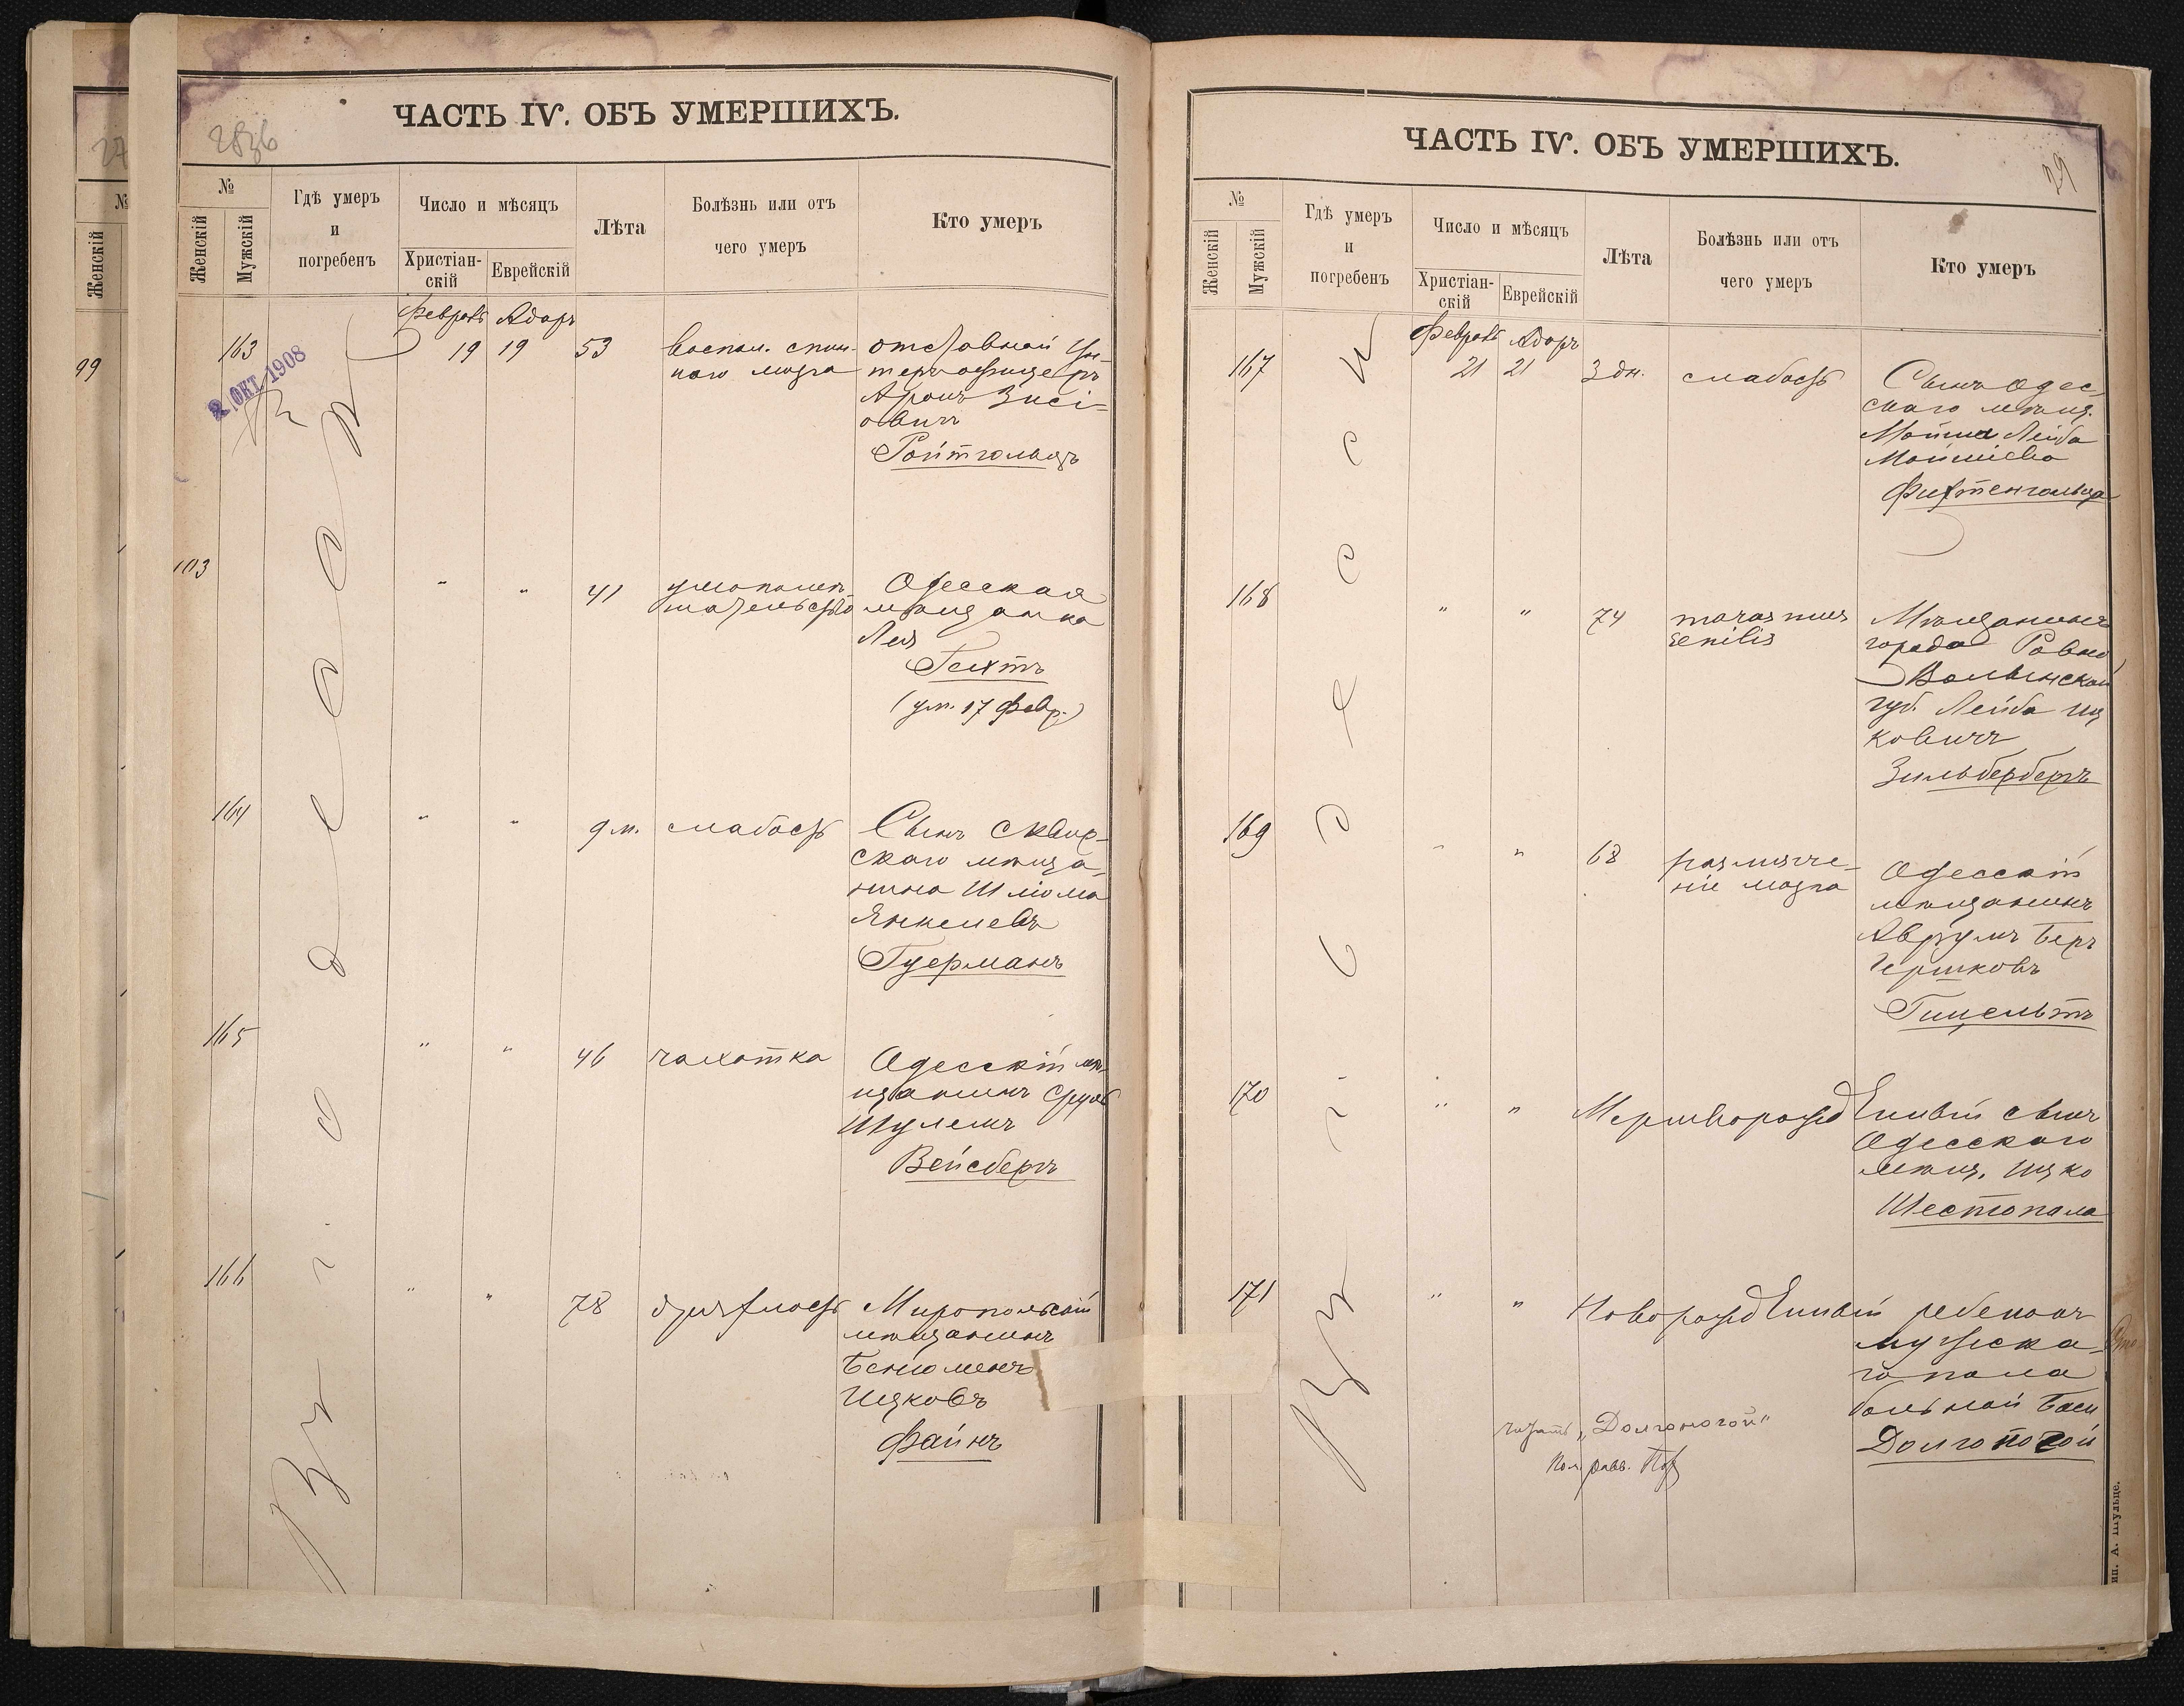 ЧАСТЬ IV. ОБЪ УМЕРШИХЪ.
№
Женскій
Мужскій
Гдѣ умеръ
и
погребенъ
Число и мѣсяцъ
Христіан-
скій
Еврейскій
Лѣта
Болѣзнь или отъ
чего умеръ
Кто умеръ
Въ г. Одессѣ
Февраль Адаръ
163
2 ОКТ 1908
19 19 53
воспал. спин-
ного мозга
отставной Ун-
теръ офицеръ
Аронъ Зисі-
овичъ
Ройтгольцъ
103
" " 41
умопомѣ-
шательство
Одесская
мѣщанка
Лея
Гехтъ
(ум. 17 Февр.)
164
" " 9 м. слабость
Сынъ Сквир-
скаго мѣща-
нина Шліома
Янкелевъ
Гуерманъ
165
" " 46 чахотка
Одесскій мѣ-
щанинъ Сруль
Шулемъ
Вейсбергъ
166
" " 78 дряхлость
Миропольскій
мѣщанинъ
Беніоменъ
Ицковъ
Файнъ
99
№
Женскій
ЧАСТЬ IV. ОБЪ УМЕРШИХЪ.
29
№
Женскій
Мужскій
Гдѣ умеръ
и
погребенъ
Число и мѣсяцъ
Христіан-
скій
Еврейскій
Лѣта
Болѣзнь или отъ
чего умеръ
Кто умеръ
Въ г. Одессѣ
Февраль Адаръ
167
21 21 3 дн. слабость
Сынъ Одес-
скаго мѣщ.
Мойше Лейба
Мойшева
Фихтенгольца
168
" " 74
marasmus
senilis
Мѣщанинъ
города Ровно
Волынской
губ. Лейба Иц
ковичъ
Зильбербергъ
169
" " 68
размягче-
ніе мозга
Одесскій
мѣщанинъ
Аврумъ Беръ
Гершковъ
Гицельтъ
170
" " Мертворожденный сынъ
Одесскаго
мѣщ. Ицко
Шестопала
171
" " Новорожденный ребенокъ
мужска-
го пола
больной Баси
Долгопогой
читать „Долгоногой"
ип. А. Шульце.